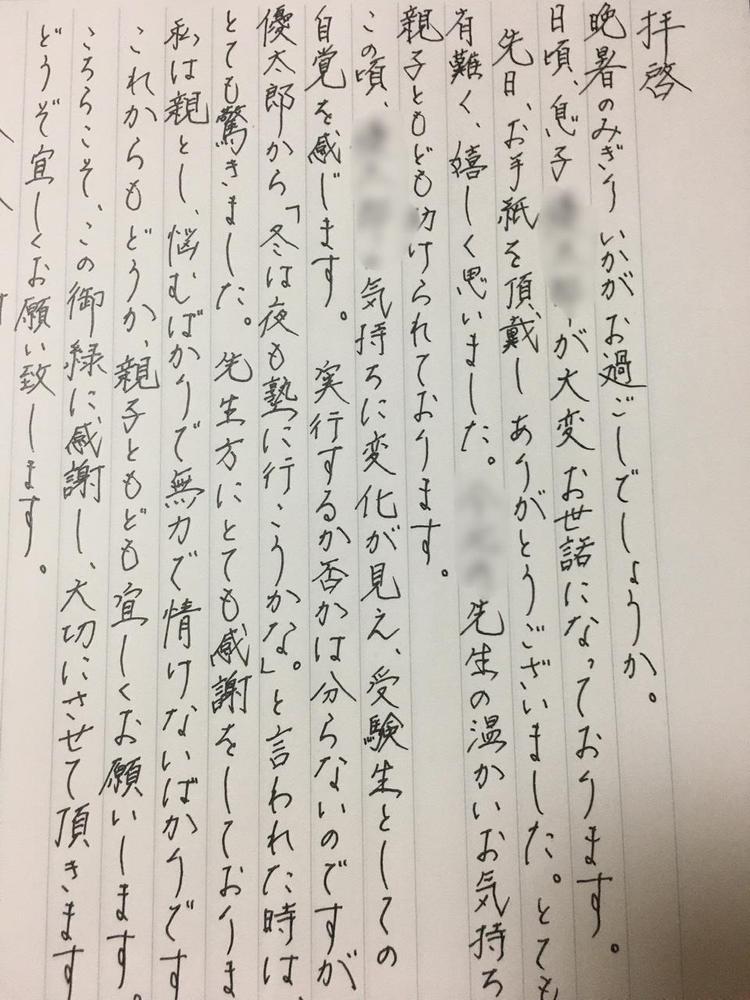 拝啓
晩暑のみぎり いかがお過ごしでしょうか。
日頃、息子 が大変お世話になっております。
先日、お手紙を頂戴し ありがとうございました。とても
有難く、嬉しく思いました。 先生の温かいお気持ち
親子ともども助けられております。
この頃、 気持ちに変化が見え、受験生としての
自覚を感じます。 実行するか否かは分らないのですが
優太郎から「冬は夜も塾に行こうかな。」と言われた時は、
とても驚きました。先生方にとても感謝をしておりま
私は親とし、悩むばかりで無力で情けないばかりです
これからもどうか、親子ともども宜しくお願いします。
こちらこそ、この御縁に感謝し、大切にさせて頂きます
どうぞ宜しくお願い致します。